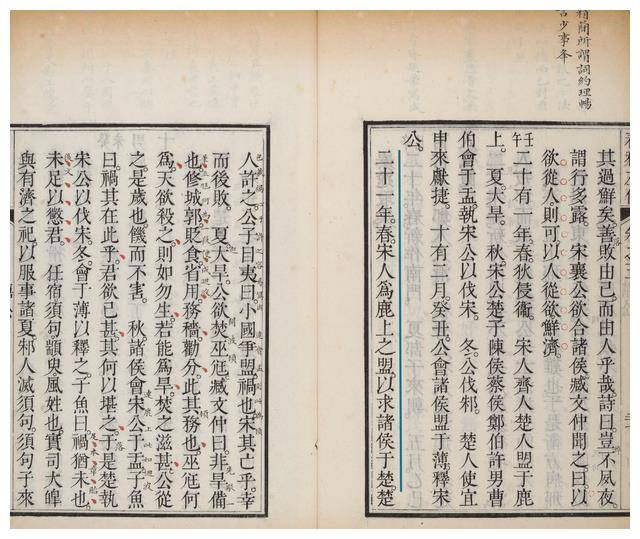 精簡所謂詞約理暢
言少事夆
其過鮮矣善敗由己而由人乎哉詩曰豈不夙夜
謂行多露 宋襄公欲合諸侯臧文仲聞之曰以
欲從人則可以人從欲鮮濟
壬午
二十有一年春狄侵衞 宋人齊人楚人盟于鹿
上 夏大旱 秋宋公楚子陳侯蔡侯鄭伯許男曹
伯會于盂執宋公以伐宋 冬公伐邾 楚人使宜
申來獻捷 十有二月癸丑公會諸侯盟于薄釋宋
公
二十一年春宋人爲鹿上之盟以求諸侯于楚楚
人許之公子目夷曰小國爭盟禍也宋其亡乎幸
而後敗 夏大旱公欲焚巫尫臧文仲曰非旱備
也修城郭貶食省用務穡勸分此其務也巫尫何
爲天欲殺之則如勿生若能爲旱焚之滋甚公從
之是歲也饑而不害 秋諸侯會宋公于盂子魚
曰禍其在此乎君欲已甚其何以堪之于是楚執
宋公以伐宋冬會于薄以釋之子魚曰禍猶未也
未足以懲君 任宿須句顓臾風姓也實司大皥
與有濟之祀以服事諸夏邾人滅須句須句子來